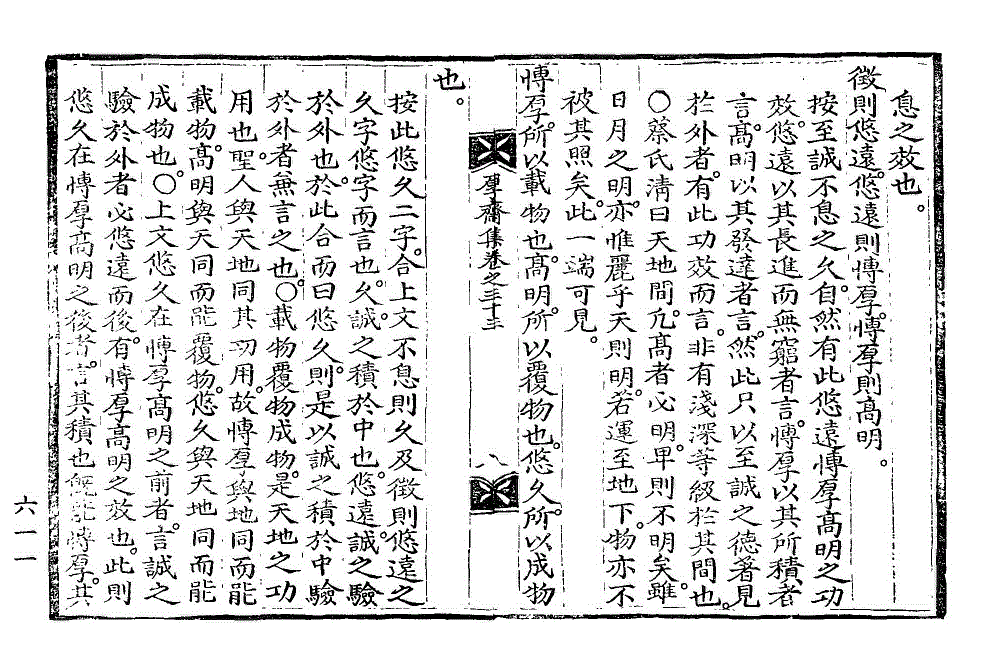 息之效也。
徵則悠遠。悠遠則博厚。博厚則高明。
按至誠不息之久。自然有此悠遠博厚高明之功
效。悠遠以其長進而無窮者言。博厚以其所積者
言。高明以其發達者言。然此只以至誠之德著見
於外者。有此功效而言。非有淺深等級於其間也。
○蔡氏淸曰天地間。凢高者必明。卑則不明矣。雖
日月之明。亦惟麗乎天則明。若運至地下。物亦不
被其照矣。此一端可見。
博厚。所以載物也。高明。所以覆物也。悠久。所以成物
厚齋集卷之三十三
八
也。
按此悠久二字。合上文不息則久及徵則悠遠之
久字悠字而言也。久。誠之積於中也。悠遠。誠之驗
於外也。於此合而曰悠久。則是以誠之積於中驗
於外者兼言之也。○載物覆物成物。是天地之功
用也。聖人與天地同其功用。故博厚與地同而能
載物。高明與天同而能覆物。悠久與天地同而能
成物也。○上文悠久在博厚高明之前者。言誠之
驗於外者必悠遠而後。有博厚高明之效也。此則
悠久在博厚高明之後者。言其積也旣能博厚。其
六一一